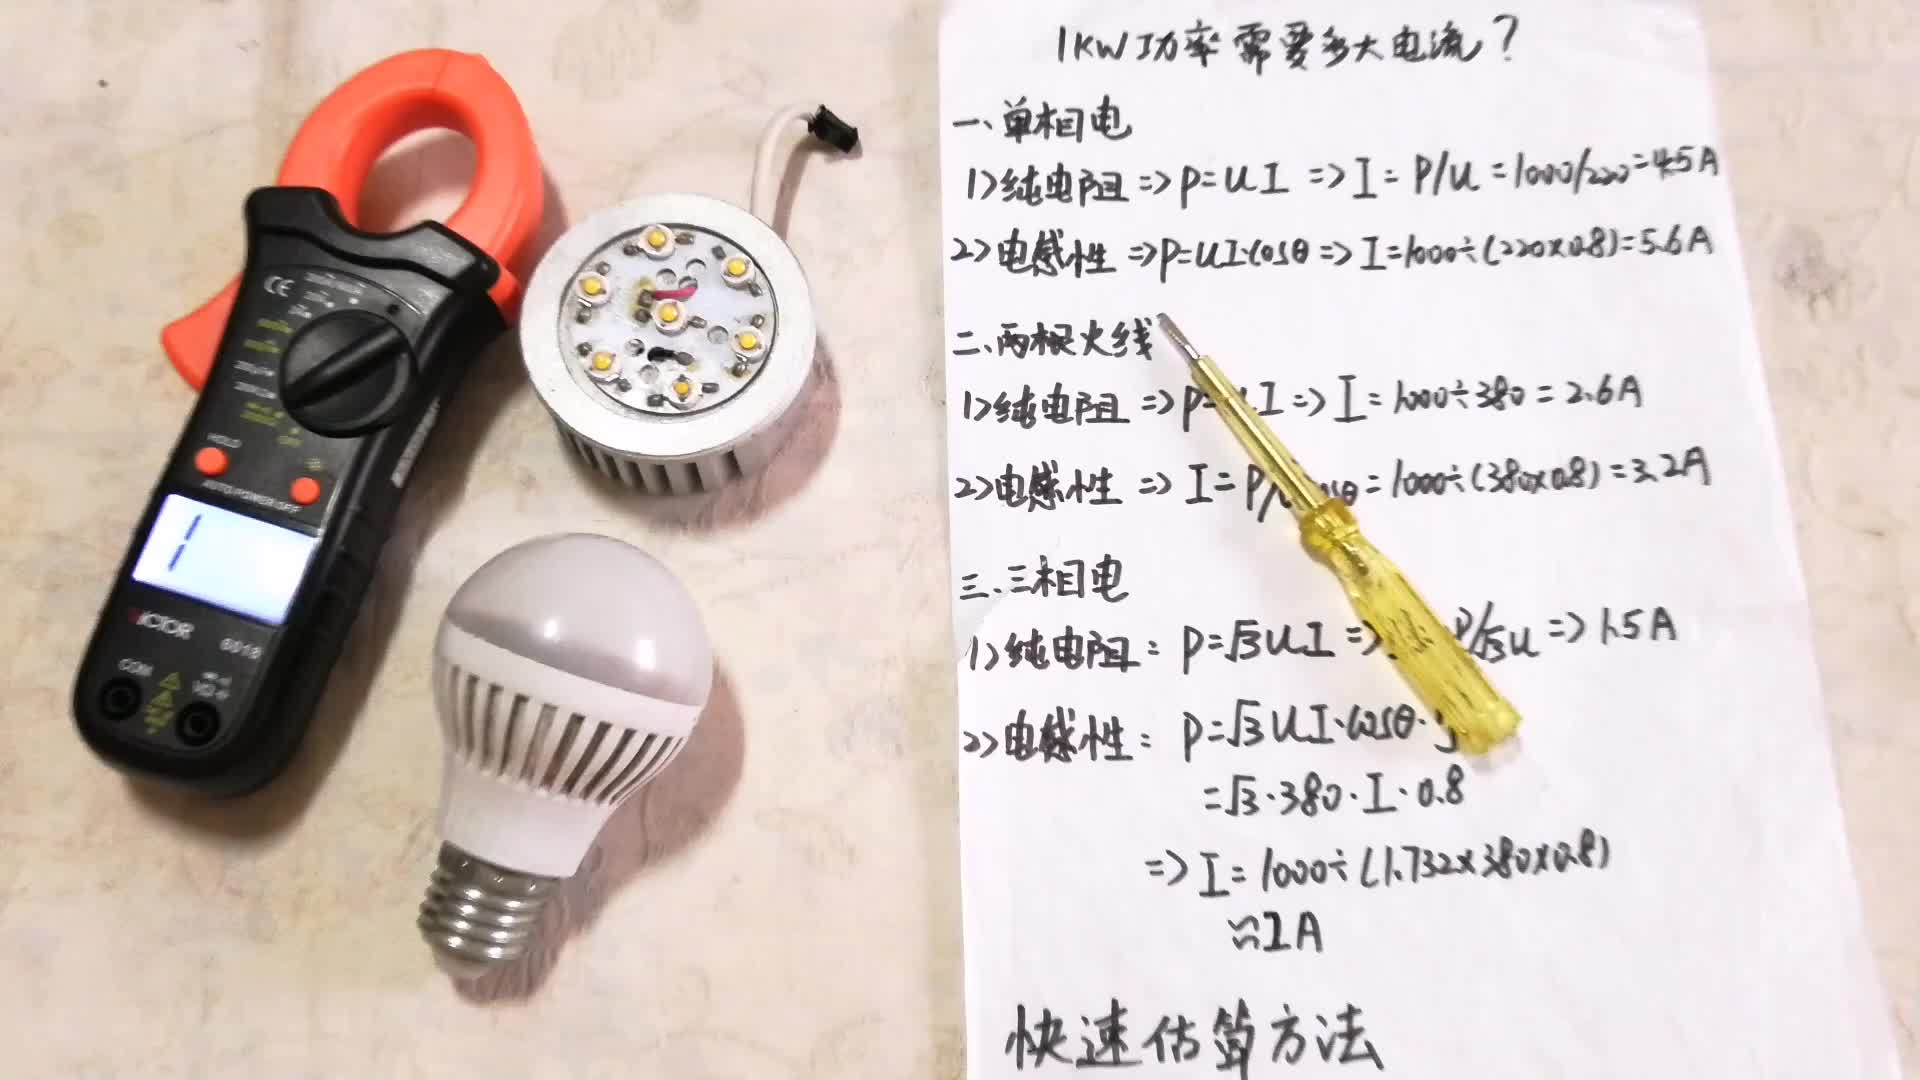 1KW功率需要多大电流?
一、单相电
1>纯电阻=>P=UI=>I=P/U=1000/220=4.5A
2>电感性=>P=UI·cosθ=>I=1000÷(220×0.8)=5.6A
二、两根火线
1>纯电阻=>P= I=>I=1000÷380=2.6A
2>电感性=>I=P/ cosθ=1000÷(380×0.8)=3.2A
三、三相电
1>纯电阻: P=√3UI=> P/√3U=>1.5A
2>电感性: P=√3UI·cosθ·
=√3·380·I·0.8
=>I=1000÷(1.732×380×0.8)
≈2A
快速估算方法
CE
HOLD
AUTO POWER OFF
1
VICTOR 6018
COM